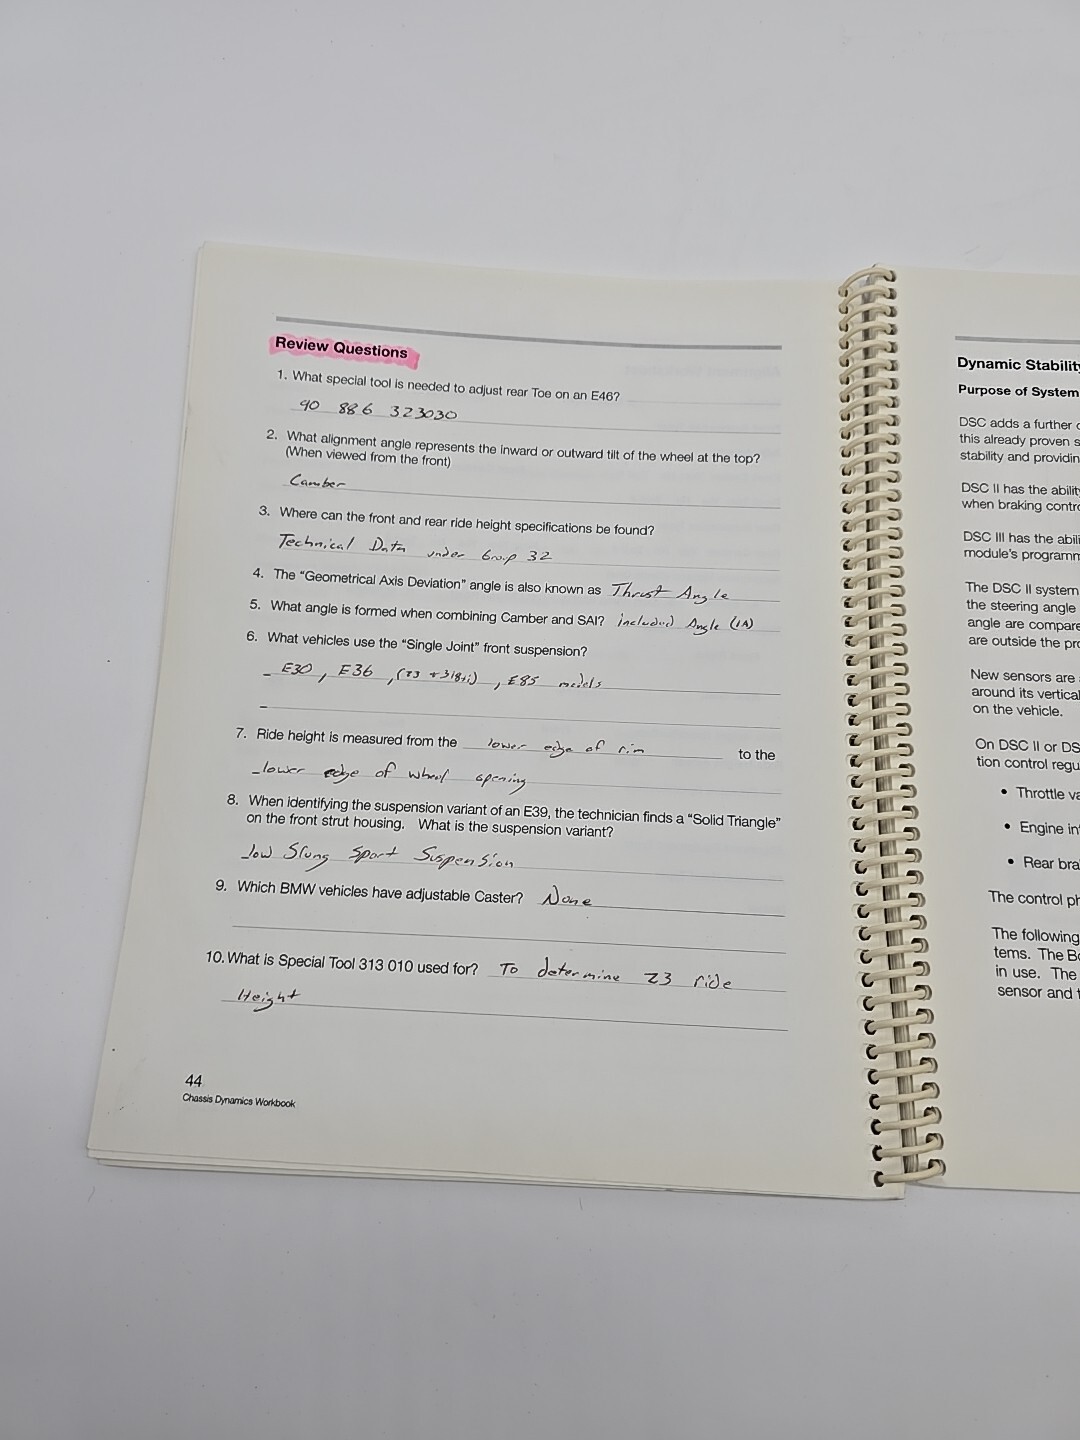 Review Questions
1. What special tool is needed to adjust rear Toe on an E46?
90 886 323030
2. What alignment angle represents the inward or outward tilt of the wheel at the top?
(When viewed from the front)
Camber
3. Where can the front and rear ride height specifications be found?
Technical Data under Group 32
4. The “Geometrical Axis Deviation” angle is also known as Thrust Angle
5. What angle is formed when combining Camber and SAI? included Angle (IA)
6. What vehicles use the “Single Joint” front suspension?
E30, E36, (Z3 + 318ti), E85 models
7. Ride height is measured from the lower edge of rim to the
lower edge of wheel opening
8. When identifying the suspension variant of an E39, the technician finds a “Solid Triangle”
on the front strut housing. What is the suspension variant?
low Slung Sport Suspension
9. Which BMW vehicles have adjustable Caster? None
10. What is Special Tool 313 010 used for? To determine Z3 ride
Height
44
Chassis Dynamics Workbook
Dynamic Stability
Purpose of System
DSC adds a further
this already proven
stability and providin
DSC II has the ability
when braking contro
DSC III has the abili
module's programm
The DSC II system
the steering angle
angle are compare
are outside the pro
New sensors are
around its vertical
on the vehicle.
On DSC II or DS
tion control regu
• Throttle va
• Engine in
• Rear bra
The control ph
The following
tems. The Bo
in use. The
sensor and t